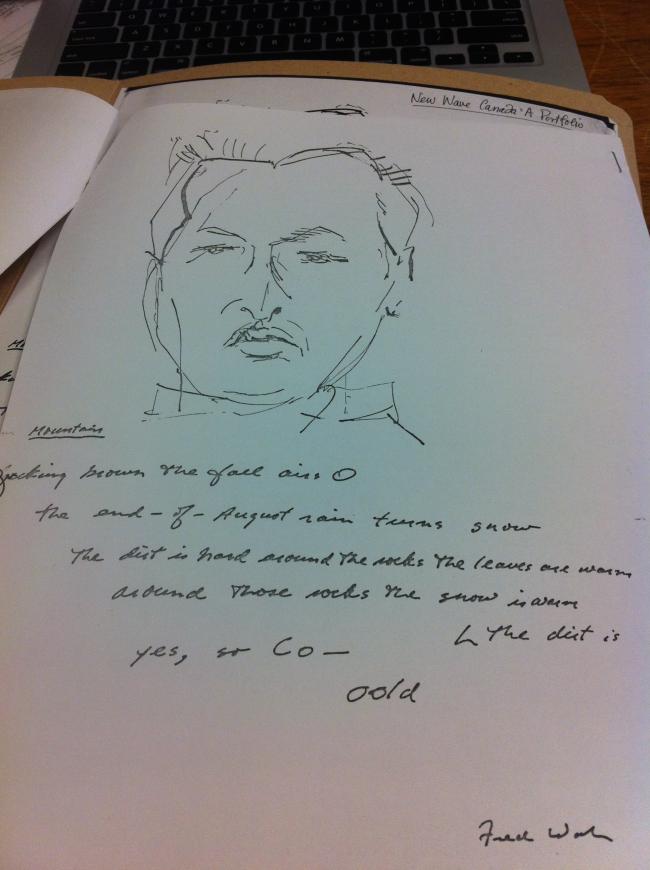 New Wave Canada: A Portfolio
Mountain
brown the fall airs O
the end-of-August rain turns snow
The dirt is hard around the rocks the leaves are warm
around those rocks the snow is warm
the dirt is
yes, so Co—
oold
Fred Wah